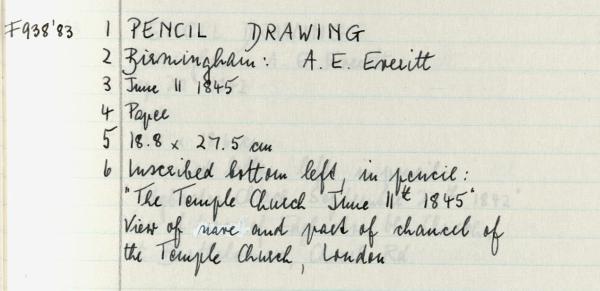 F938'83 1 PENCIL DRAWING
2 Birmingham: A. E. Everitt
3 June 11 1845
4 Paper
5 18.8 x 27.5 cm
6 Inscribed bottom left, in pencil:
"The Temple Church June 11th 1845"
View of nave and part of chancel of
the Temple Church, London